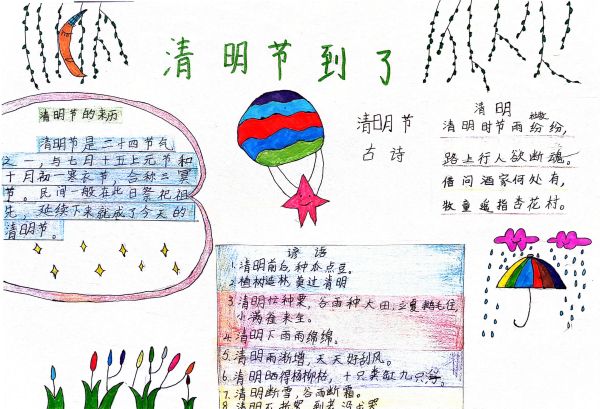 清明节到了
清明节的来历
清明节是二十四节气
之一,与七月十五上元节和
十月初一寒衣节,合称三冥
节。民间一般在此日祭祀祖
先,延续下来就成了今天的
清明节。
清明节
古诗
清明
杜牧
清明时节雨纷纷,
路上行人欲断魂。
借问酒家何处有,
牧童遥指杏花村。
谚语
1.清明前后,种瓜点豆。
2.植树造林,莫过清明
3.清明忙种粟,谷雨种大田,立夏鹅毛住,
小满雀来生。
4.清明下雨雨绵绵。
5.清明雨渐增,天天好刮风。
6.清明晒得杨柳枯,十只粪缸九只浮。
7.清明断雪,谷雨断霜。
8.清明不